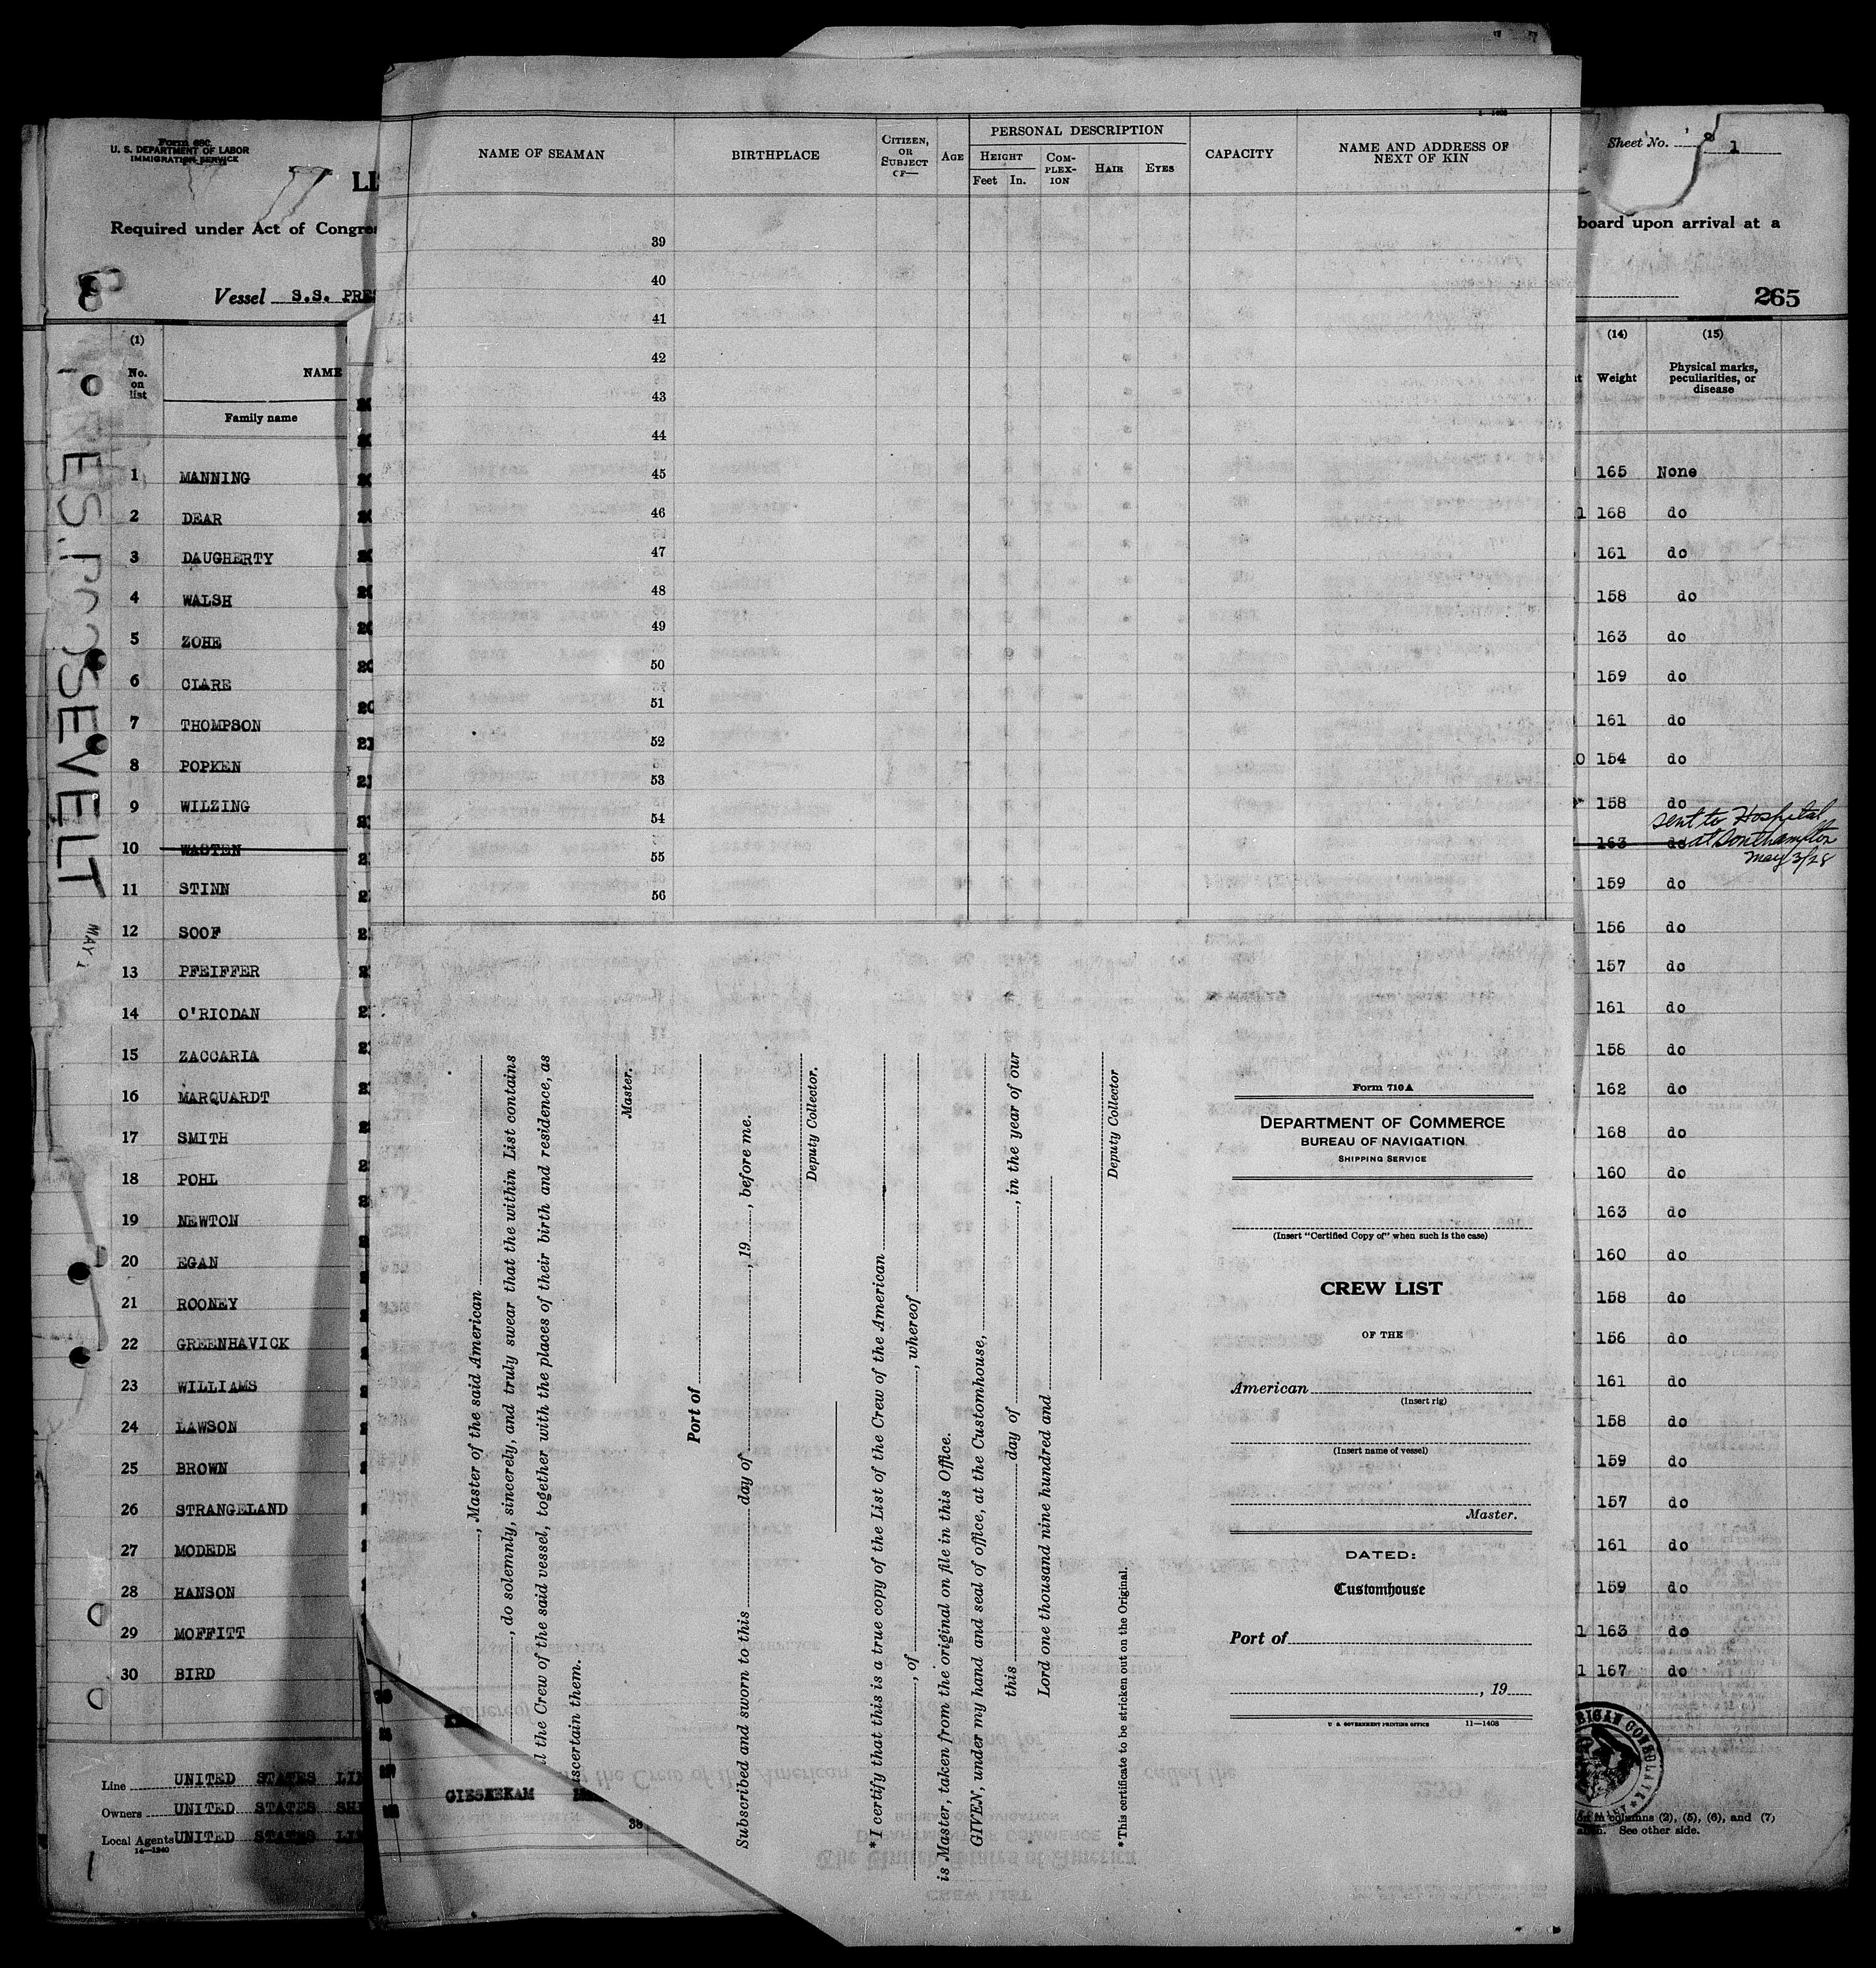 Form 680
U. S. DEPARTMENT OF LABOR
IMMIGRATION SERVICE
Required under Act of
Vessel S.S.
(1)
No. on list
NAME
Family name
1 MANNING
2 DEAR
3 DAUGHERTY
4 WALSH
5 ZOHE
6 CLARE
7 THOMPSON
8 POPKEN
9 WILZING
10 WASTEN
11 STINN
12 SOOF
13 PFEIFFER
14 O'RIODAN
15 ZACCARIA
16 MARQUARDT
17 SMITH
18 POHL
19 NEWTON
20 EGAN
21 ROONEY
22 GREENHAVICK
23 WILLIAMS
24 LAWSON
25 BROWN
26 STRANGELAND
27 MODEDE
28 HANSON
29 MOFFITT
30 BIRD
Line UNITED STATES
Owners UNITED STATES
Local Agents UNITED STATES
14—1240
MAY 1
NAME OF SEAMAN
BIRTHPLACE
CITIZEN, OR SUBJECT OF—
AGE
PERSONAL DESCRIPTION
HEIGHT
Feet In.
COMPLEXION
HAIR
EYES
CAPACITY
NAME AND ADDRESS OF NEXT OF KIN
39
40
41
42
43
44
45
46
47
48
49
50
51
52
53
54
55
56
GIESHEKAM
38
, Master of the said American
, do solemnly, sincerely, and truly swear that the within List contains
the Crew of the said vessel, together with the places of their birth and residence, as
ascertain them.
Master.
Port of
Subscribed and sworn to this day of , 19 , before me.
Deputy Collector.
*I certify that this is a true copy of the List of the Crew of the American
, of , whereof
is Master, taken from the original on file in this Office.
GIVEN, under my hand and seal of office, at the Customhouse,
this day of , in the year of our
Lord one thousand nine hundred and
Deputy Collector
*This certificate to be stricken out on the Original.
Form 710A
DEPARTMENT OF COMMERCE
BUREAU OF NAVIGATION
SHIPPING SERVICE
(Insert "Certified Copy of" when such is the case)
CREW LIST
OF THE
American
(Insert rig)
(Insert name of vessel)
Master.
DATED:
Customhouse
Port of
, 19
U. S. GOVERNMENT PRINTING OFFICE 11—1408
Sheet No. 1
board upon arrival at a
265
(14)
Weight
(15)
Physical marks, peculiarities, or disease
165 None
168 do
161 do
158 do
163 do
159 do
161 do
154 do
158 do
sent to Hospital
163 do at Southampton
May 3/28
159 do
156 do
157 do
161 do
156 do
162 do
168 do
160 do
163 do
160 do
158 do
156 do
161 do
158 do
159 do
157 do
161 do
159 do
163 do
167 do
in columns (2), (5), (6), and (7)
See other side.